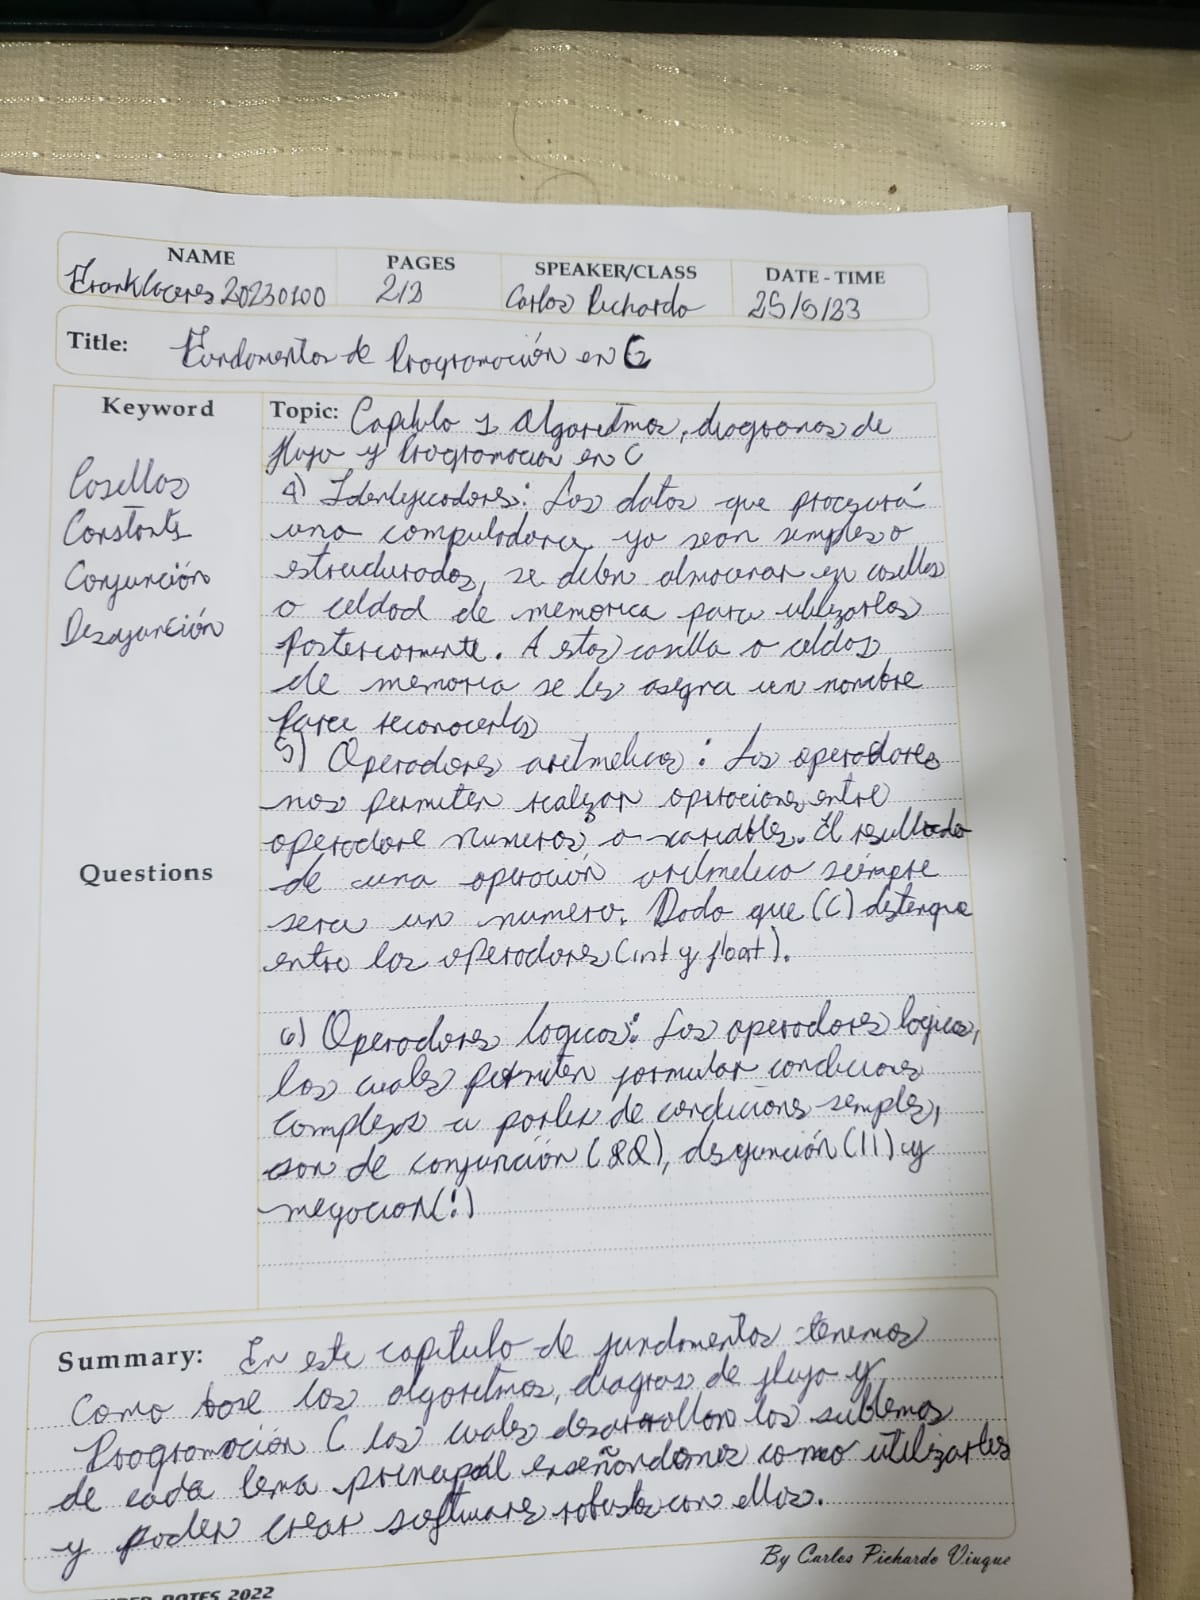 NAME
PAGES
SPEAKER/CLASS
DATE - TIME
Frank Caceres 20230100
2/2
Carlos Pichardo
25/5/23
Title: Fundamentos de Programación en C
Keyword
Topic: Capitulo 1 Algoritmos, diagramas de
flujo y Programacion en C
Casillas
Constante
Conjunción
Desyunción
4) Identificadores: Los datos que procesará
una computadora, ya sean simples o
estructurados, se deben almacenar en casillas
o celdad de memoria para utilizarlos
posteriormente. A estas casilla o celdas
de memoria se les asigna un nombre
para reconocerlas
5) Operadores aritmeticos: Los operadores
nos permiten realizar operaciones entre
operadore numeros o variables. El resultado
de una operación aritmetica siempre
sera un numero. Dado que (C) distingue
entre los operadores (int y float).
Questions
6) Operadores logicos: Los operadores logicos,
los cuales permiten formular condiciones
complejas a partir de condiciones simples,
son de conjunción (&&), desyunción (||) y
negacion (!)
Summary: En este capitulo de fundamentos tenemos
como base los algoritmos, diagras de flujo y
Programación C los cuales desarrollan los subtemas
de cada tema principal enseñandonos como utilizarlos
y poder crear softwares robusto con ellos.
By Carlos Pichardo Viuque
NOTES 2022